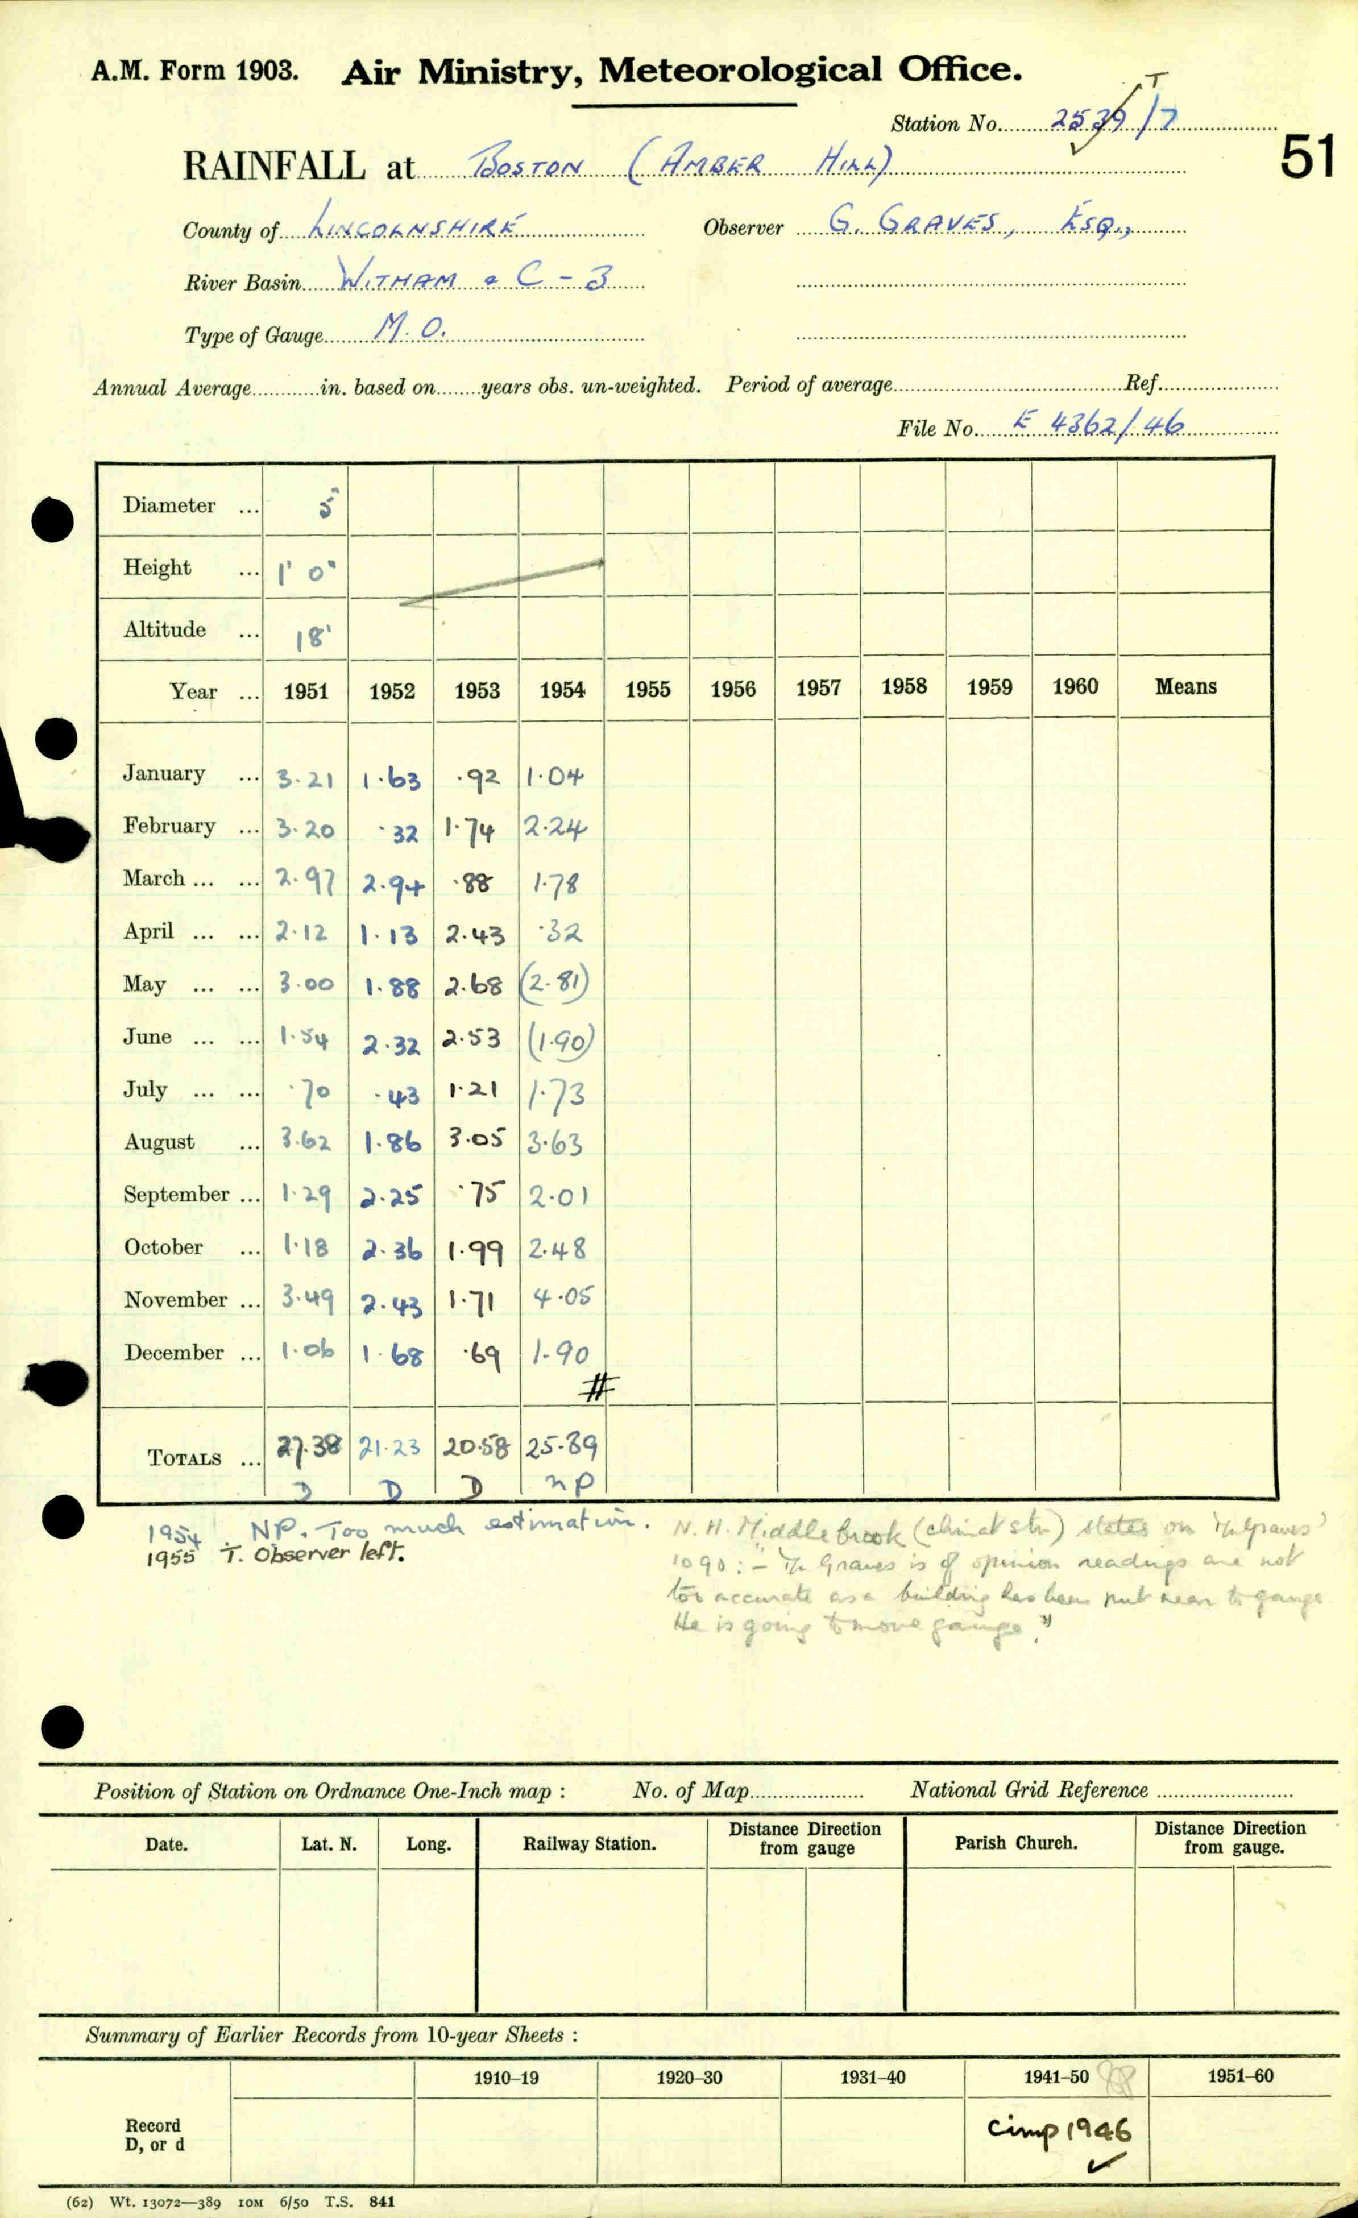 A.M. Form 1903. Air Ministry, Meteorological Office.
T
Station No. 2539/7
51
RAINFALL at BOSTON (AMBER HILL)
County of LINCOLNSHIRE Observer G. GRAVES, ESQ.,
River Basin WITHAM & C - 3
Type of Gauge M.O.
Annual Average in. based on years obs. un-weighted. Period of average Ref.
File No. E 4362/46
Diameter ... 5"
Height ... 1' 0"
Altitude ... 18'
Year ... 1951 1952 1953 1954 1955 1956 1957 1958 1959 1960 Means
January ... 3.21 1.63 .92 1.04
February ... 3.20 .32 1.74 2.24
March ... ... 2.97 2.94 .88 1.78
April ... ... 2.12 1.13 2.43 .32
May ... ... 3.00 1.88 2.68 (2.81)
June ... ... 1.54 2.32 2.53 (1.90)
July ... ... .70 .43 1.21 1.73
August ... 3.62 1.86 3.05 3.63
September ... 1.29 2.25 .75 2.01
October ... 1.18 2.36 1.99 2.48
November ... 3.49 2.43 1.71 4.05
December ... 1.06 1.68 .69 1.90
#
TOTALS ... 27.38 21.23 20.58 25.89
D D D NP
1954 NP. Too much estimation.
1955 T. Observer left.
N. H. Middlebrook (climat stn) states on Mr Graves'
1090 :- "Mr Graves is of opinion readings are not
too accurate as a building has been put near to gauge
He is going to move gauge."
Position of Station on Ordnance One-Inch map : No. of Map National Grid Reference
Date. Lat. N. Long. Railway Station. Distance Direction from gauge Parish Church. Distance Direction from gauge.
Summary of Earlier Records from 10-year Sheets :
1910–19 1920–30 1931–40 1941–50 1951–60
Record
D, or d
Cimp 1946
(62) Wt. 13072—389 10M 6/50 T.S. 841